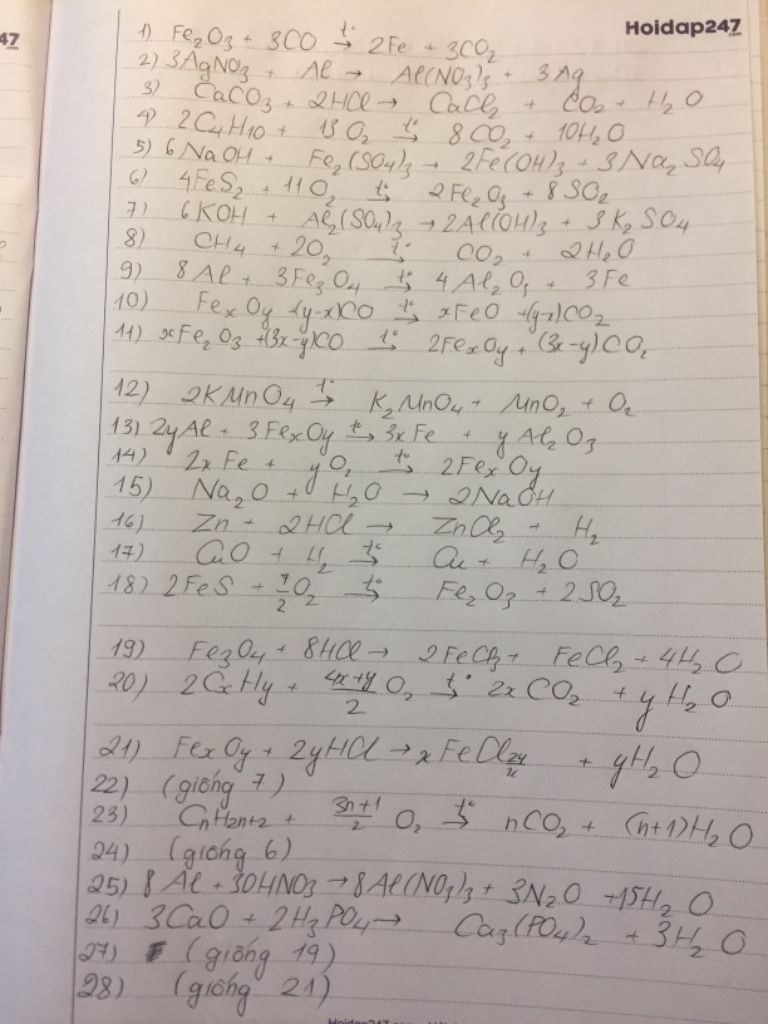 47
Hoidap247
.com
1) Fe₂O₃ + 3CO t°→ 2Fe + 3CO₂
2) 3AgNO₃ + Al → Al(NO₃)₃ + 3Ag
3) CaCO₃ + 2HCl → CaCl₂ + CO₂ + H₂O
4) 2C₄H₁₀ + 13O₂ t°→ 8CO₂ + 10H₂O
5) 6NaOH + Fe₂(SO₄)₃ → 2Fe(OH)₃ + 3Na₂SO₄
6) 4FeS₂ + 11O₂ t°→ 2Fe₂O₃ + 8SO₂
7) 6KOH + Al₂(SO₄)₃ → 2Al(OH)₃ + 3K₂SO₄
8) CH₄ + 2O₂ t°→ CO₂ + 2H₂O
9) 8Al + 3Fe₃O₄ t°→ 4Al₂O₃ + 3Fe
10) FexOy +(y-x)CO t°→ xFeO +(y-x)CO₂
11) xFe₂O₃ +(3x-y)CO t°→ 2FexOy + (3x-y)CO₂
12) 2KMnO₄ t°→ K₂MnO₄ + MnO₂ + O₂
13) 2yAl + 3FexOy t°→ 3xFe + yAl₂O₃
14) 2xFe + yO₂ t°→ 2FexOy
15) Na₂O + H₂O → 2NaOH
16) Zn + 2HCl → ZnCl₂ + H₂
17) CuO + H₂ t°→ Cu + H₂O
18) 2FeS + 7/2 O₂ t°→ Fe₂O₃ + 2SO₂
19) Fe₃O₄ + 8HCl → 2FeCl₃ + FeCl₂ + 4H₂O
20) 2CxHy + (4x+y)/2 O₂ t°→ 2xCO₂ + yH₂O
21) FexOy + 2yHCl → xFeCl2y/x + yH₂O
22) (giống 7)
23) CnH2n+2 + (3n+1)/2 O₂ t°→ nCO₂ + (n+1)H₂O
24) (giống 6)
25) 8Al + 30HNO₃ → 8Al(NO₃)₃ + 3N₂O + 15H₂O
26) 3CaO + 2H₃PO₄ → Ca₃(PO₄)₂ + 3H₂O
27) (giống 19)
28) (giống 21)